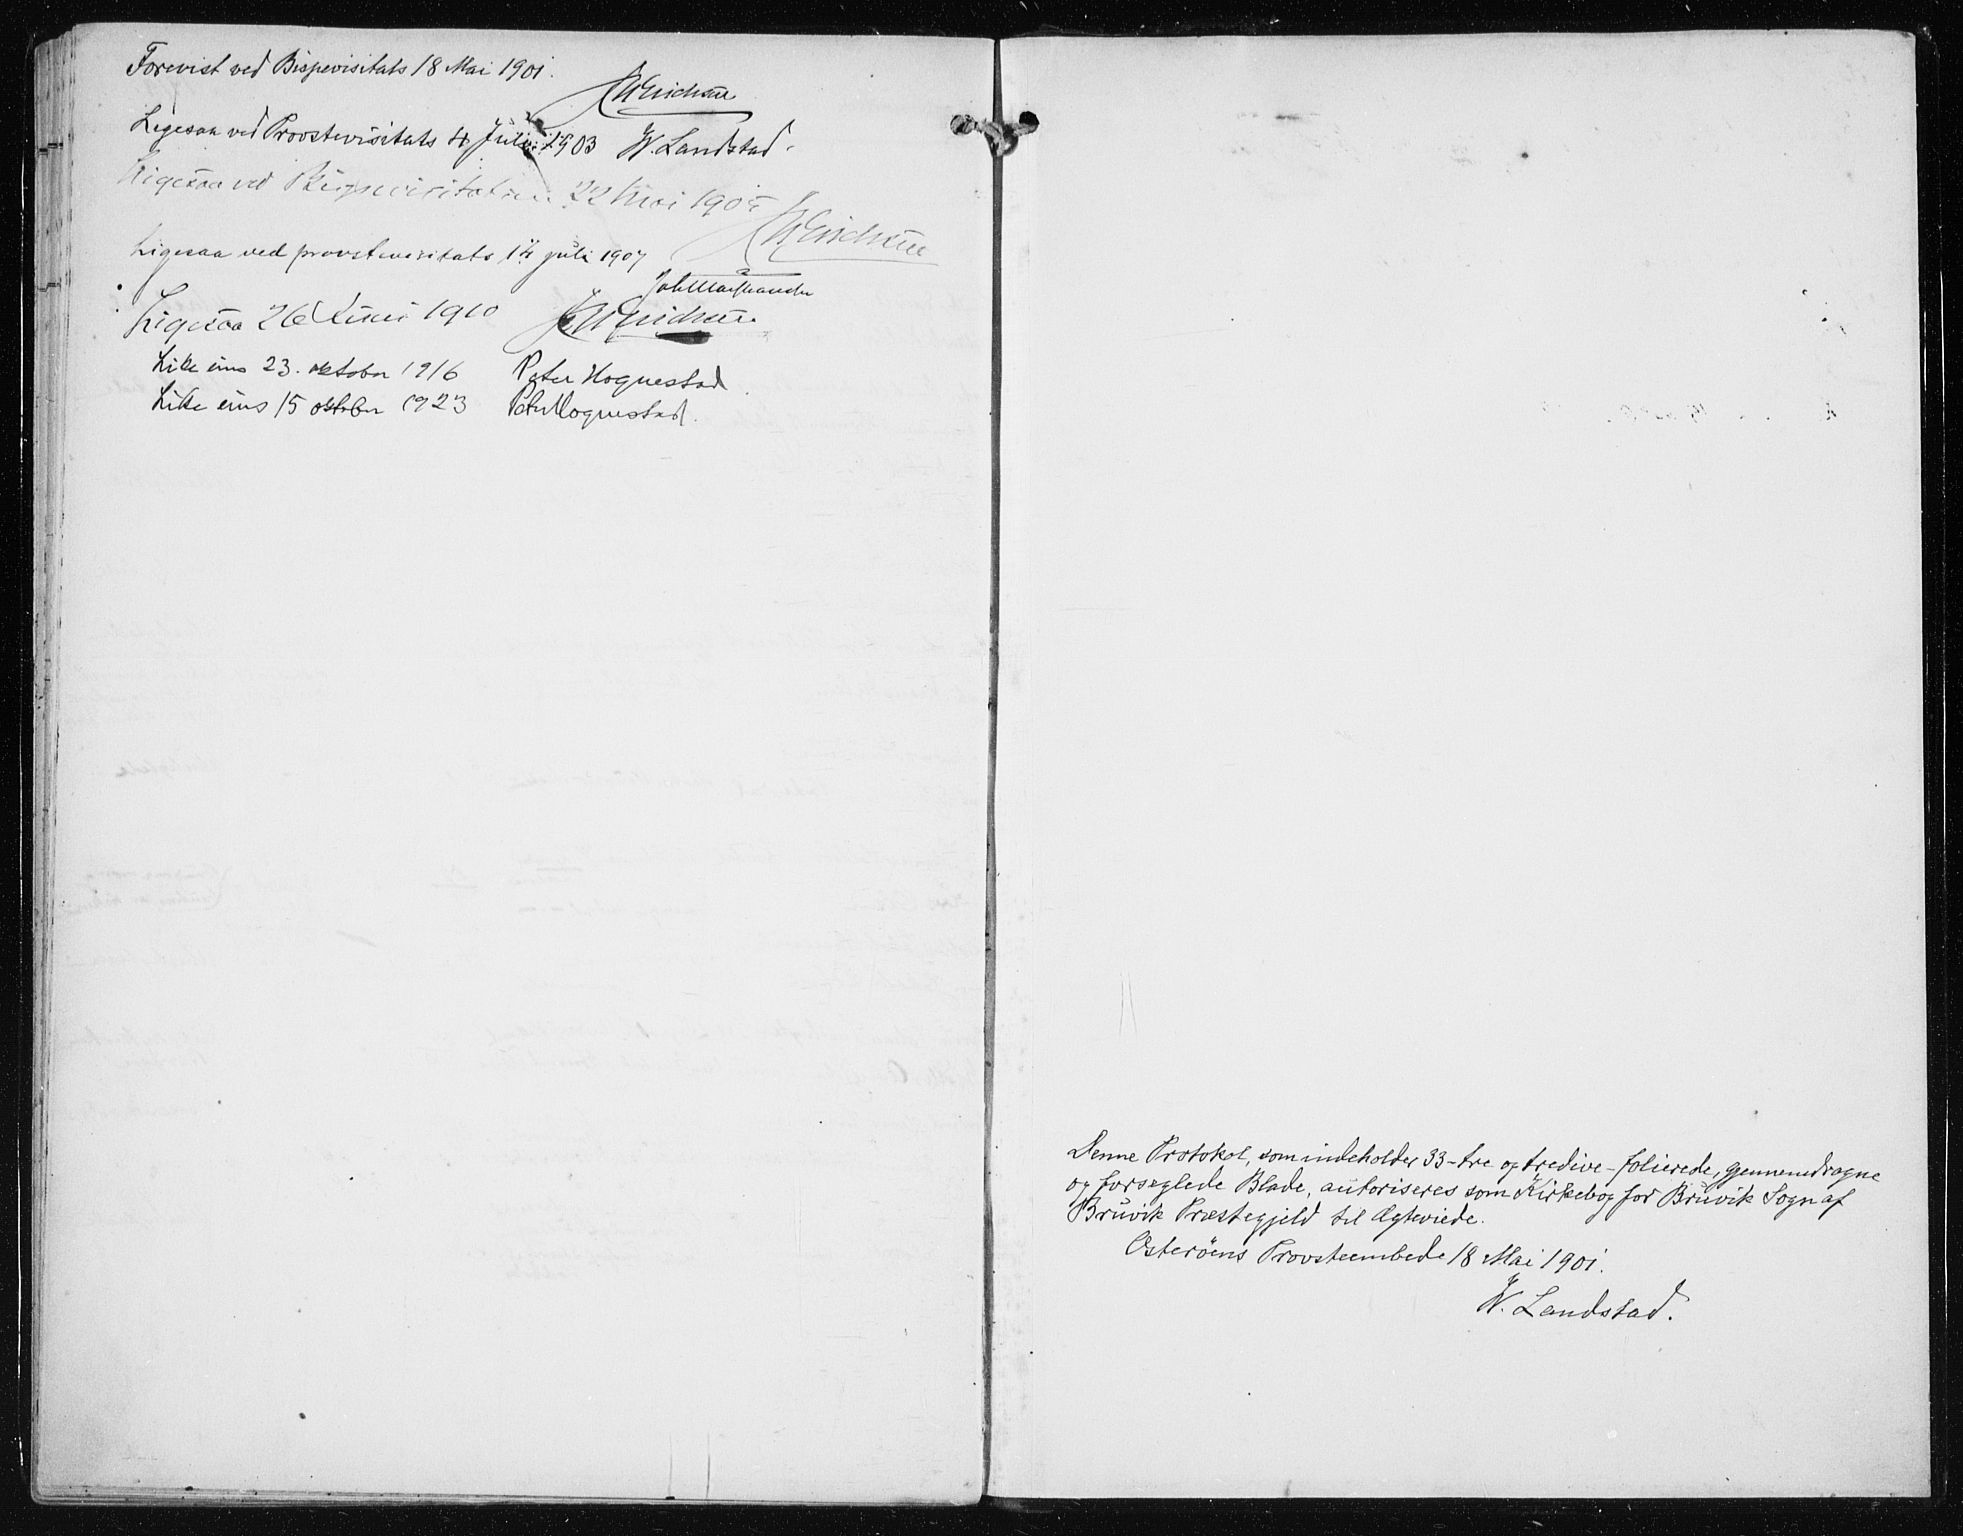 Forevist ved Bispevisitats 18 Mai 1901.
Ligesaa ved Provstevisitats 4 Juli 1903 W. Landstad.
Ligesaa ved Bispevisitatsen 22 Mai 1905
Ligesaa ved provstevisitats 14 juli 1907
Ligesaa 26 Juni 1910
Like eins 23. oktober 1916 Peter Hognestad
Like eins 15 oktober 1923 Peter Hognestad.
Denne Protokol, som indeholder 33 - tre og tredive - folierede, gjennemdragne
og forseglede Blade, autoriseres som Kirkebog for Bruvik Sogn af
Bruvik Præstegjeld til Ægteviede.
Osterøens Provsteembede 18 Mai 1901.
W. Landstad.